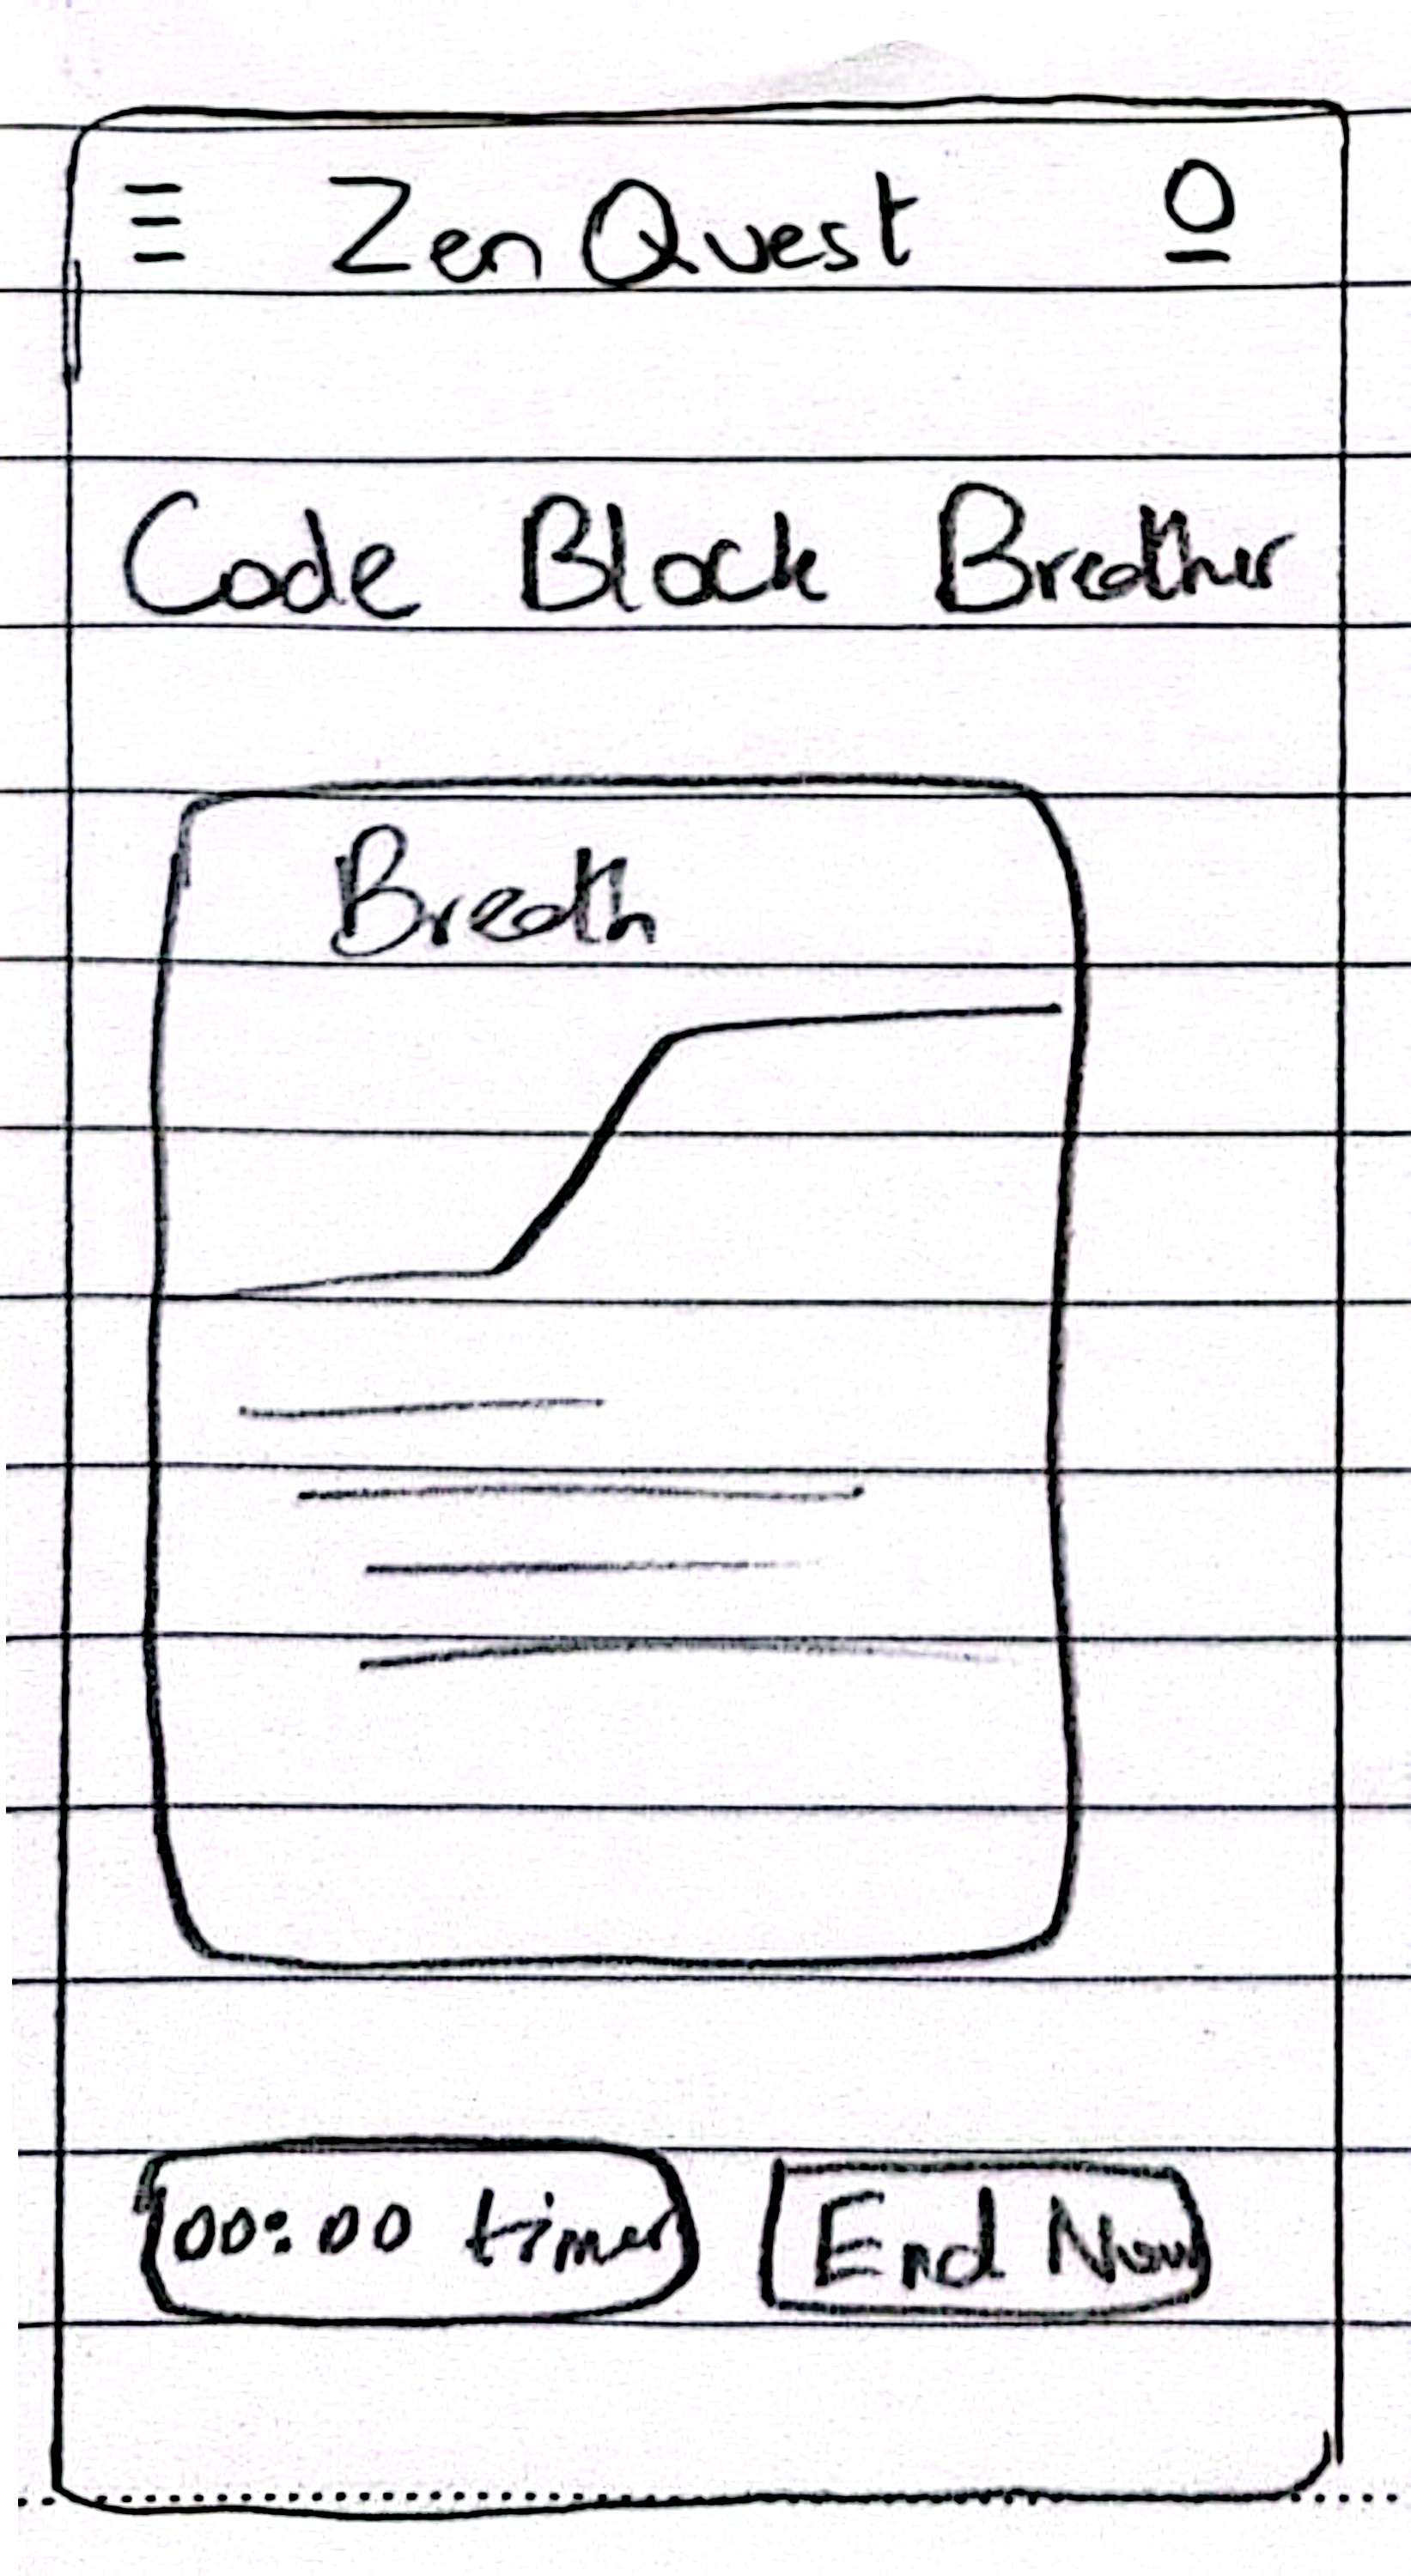 Zen Quest
Code Block Breather
Breath
00:00 timer
End Now